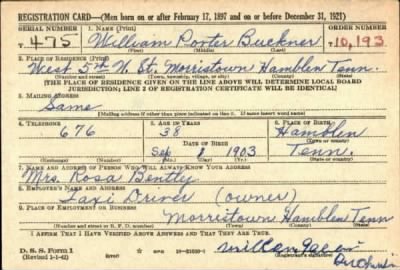 REGISTRATION CARD—(Men born on or after February 17, 1897 and on or before December 31, 1921)
SERIAL NUMBER 1. NAME (Print) ORDER NUMBER
T 475 William Porter Buckner T 10,193
(First) (Middle) (Last)
2. PLACE OF RESIDENCE (Print)
West 5th N. St. Morristown Hamblen Tenn.
(Number and street) (Town, township, village, or city) (County) (State)
[THE PLACE OF RESIDENCE GIVEN ON THE LINE ABOVE WILL DETERMINE LOCAL BOARD
JURISDICTION; LINE 2 OF REGISTRATION CERTIFICATE WILL BE IDENTICAL]
3. MAILING ADDRESS
Same
[Mailing address if other than place indicated on line 2. If same insert word same]
4. TELEPHONE 5. AGE IN YEARS 6. PLACE OF BIRTH
676 38 Hamblen
DATE OF BIRTH (Town or county)
Sep 1903 Tenn.
(Exchange) (Number) (Mo.) (Day) (Yr.) (State or country)
7. NAME AND ADDRESS OF PERSON WHO WILL ALWAYS KNOW YOUR ADDRESS
Mrs. Rosa Bently
8. EMPLOYER'S NAME AND ADDRESS
Taxi Driver (owner)
9. PLACE OF EMPLOYMENT OR BUSINESS
Morristown Hamblen Tenn
(Number and street or R. F. D. number) (Town) (County) (State)
I AFFIRM THAT I HAVE VERIFIED ABOVE ANSWERS AND THAT THEY ARE TRUE.
D. S. S. Form 1
(Revised 1-1-42) (over) (Registrant's signature)